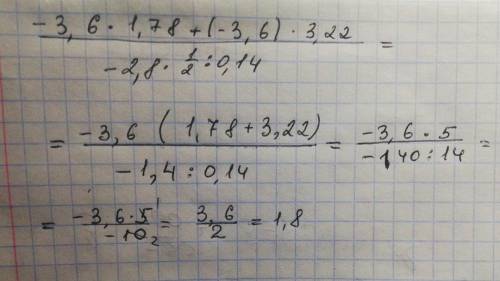 (-3,6 · 1,78 + (-3,6) · 3,22) / (-2,8 · 1/2 : 0,14) =
= (-3,6 (1,78 + 3,22)) / (-1,4 : 0,14) = (-3,6 · 5) / (-140 : 14) =
= (-3,6 · 5 1) / (-10 2) = 3,6 / 2 = 1,8